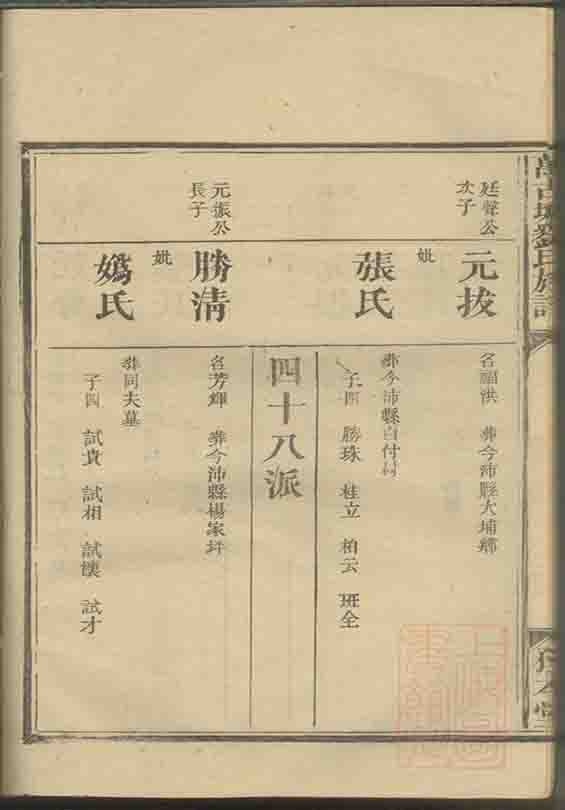 萬古城劉氏族譜
廷聲公
次子
元拔
名福洪 葬今沛縣大埔鄉
妣
張氏
葬今沛縣白付村
子四 勝珠 桂立 柏云 班全
四十八派
元振公
長子
勝清
名芳輝 葬今沛縣楊家坪
妣
媯氏
葬同夫墓
子四 試貴 試相 試懷 試才